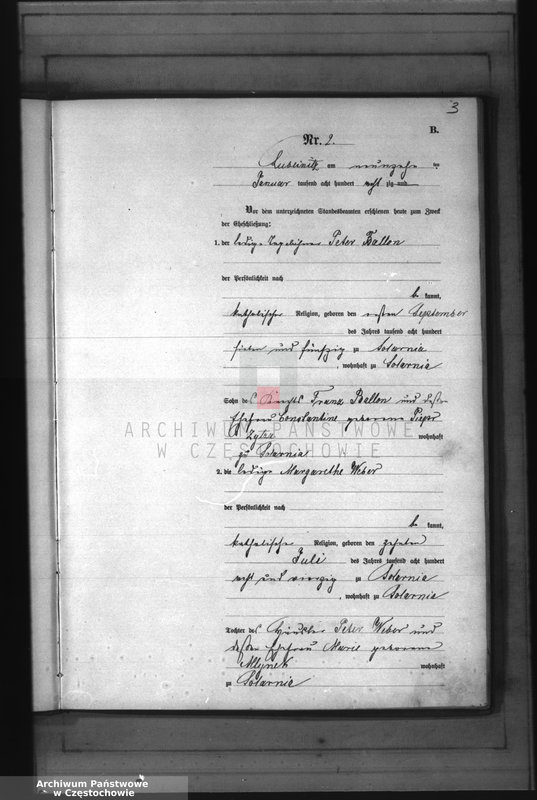 3
B.
Nr. 2.
Lublinitz am neunzehn ten
Januar tausend acht hundert acht zig und
Vor dem unterzeichneten Standesbeamten erschienen heute zum Zweck
der Eheschließung:
1. der ledige Tagelöhner Peter Ballon
der Persönlichkeit nach
be kannt,
katholischer Religion, geboren den ersten September
des Jahres tausend acht hundert
sieben und fünfzig zu Solarnia
, wohnhaft zu Solarnia
Sohn des Knechts Franz Ballon und dessen
Ehefrau Constantine geborene
wohnhaft
zu Solarnia
2. die ledige Margarethe Weber
der Persönlichkeit nach
be kannt,
katholische Religion, geboren den zehnten
Juli des Jahres tausend acht hundert
acht und vierzig zu Solarnia
, wohnhaft zu Solarnia
Tochter des Häusler Peter Weber und
dessen Ehefrau Marie geborene
Mlynek wohnhaft
zu Solarnia
ARCHIWUM PAŃSTWOWE
W CZĘSTOCHOWIE
Archiwum Państwowe
w Częstochowie